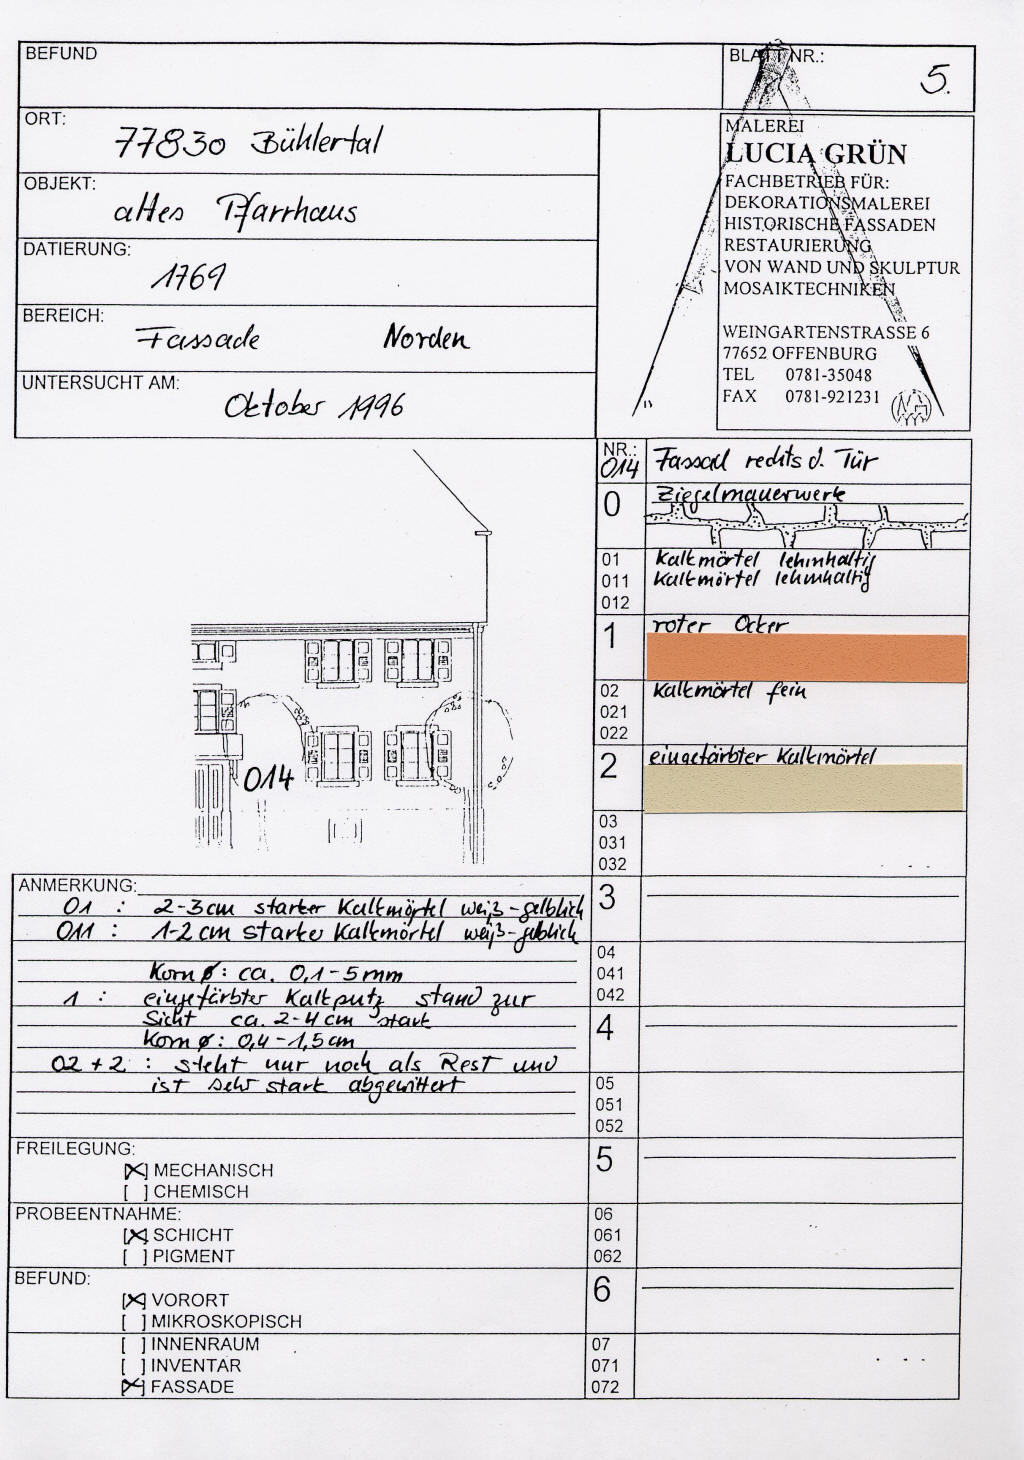 BEFUND
BLATT NR.: 5.
ORT: 77830 Bühlertal
OBJEKT: altes Pfarrhaus
DATIERUNG: 1769
BEREICH: Fassade Norden
UNTERSUCHT AM: Oktober 1996
MALEREI
LUCIA GRÜN
FACHBETRIEB FÜR:
DEKORATIONSMALEREI
HISTORISCHE FASSADEN
RESTAURIERUNG
VON WAND UND SKULPTUR
MOSAIKTECHNIKEN
WEINGARTENSTRASSE 6
77652 OFFENBURG
TEL 0781-35048
FAX 0781-921231
014
NR.: 014 Fassad rechts d. Tür
0 Ziegelmauerwerk
01 Kalkmörtel lehmhaltig
011 Kalkmörtel lehmhaltig
012
1 roter Ocker
02 Kalkmörtel fein
021
022
2 eingefärbter Kalkmörtel
03
031
032
3
04
041
042
4
05
051
052
5
06
061
062
6
07
071
072
ANMERKUNG:
01 : 2-3cm starker Kalkmörtel weiß-gelblich
011 : 1-2cm starker Kalkmörtel weiß-gelblich
Korn ø: ca. 0,1-5mm
1 : eingefärbter Kalkputz stand zur
Sicht ca. 2-4cm stark
Korn ø: 0,4-1,5cm
02+2 : steht nur noch als Rest und
ist sehr stark abgewittert
FREILEGUNG:
[X] MECHANISCH
[ ] CHEMISCH
PROBEENTNAHME:
[X] SCHICHT
[ ] PIGMENT
BEFUND:
[X] VORORT
[ ] MIKROSKOPISCH
[ ] INNENRAUM
[ ] INVENTAR
[X] FASSADE